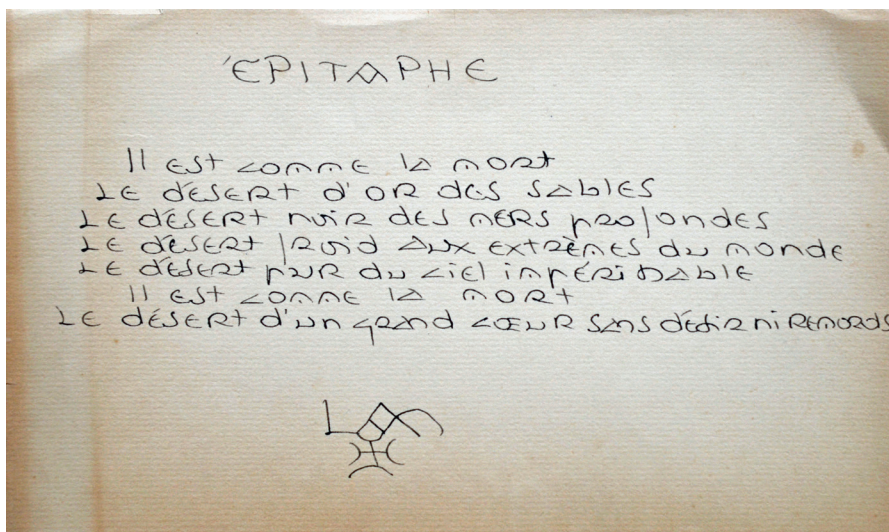 ÉPITAPHE
Il est comme la mort
Le désert d'or des sables
Le désert noir des mers profondes
Le désert froid aux extrêmes du monde
Le désert pur du ciel impérissable
Il est comme la mort
Le désert d'un grand cœur sans désir ni remords